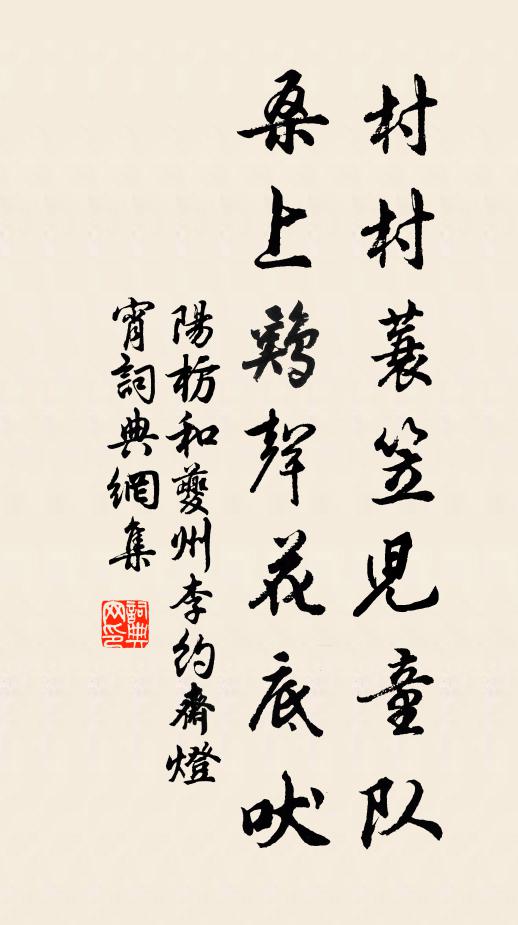 村村蓑笠兒童队
桑上鷄聲花底吠
陽枋和夔州李約齋燈
宵詞典網集
詞典网印